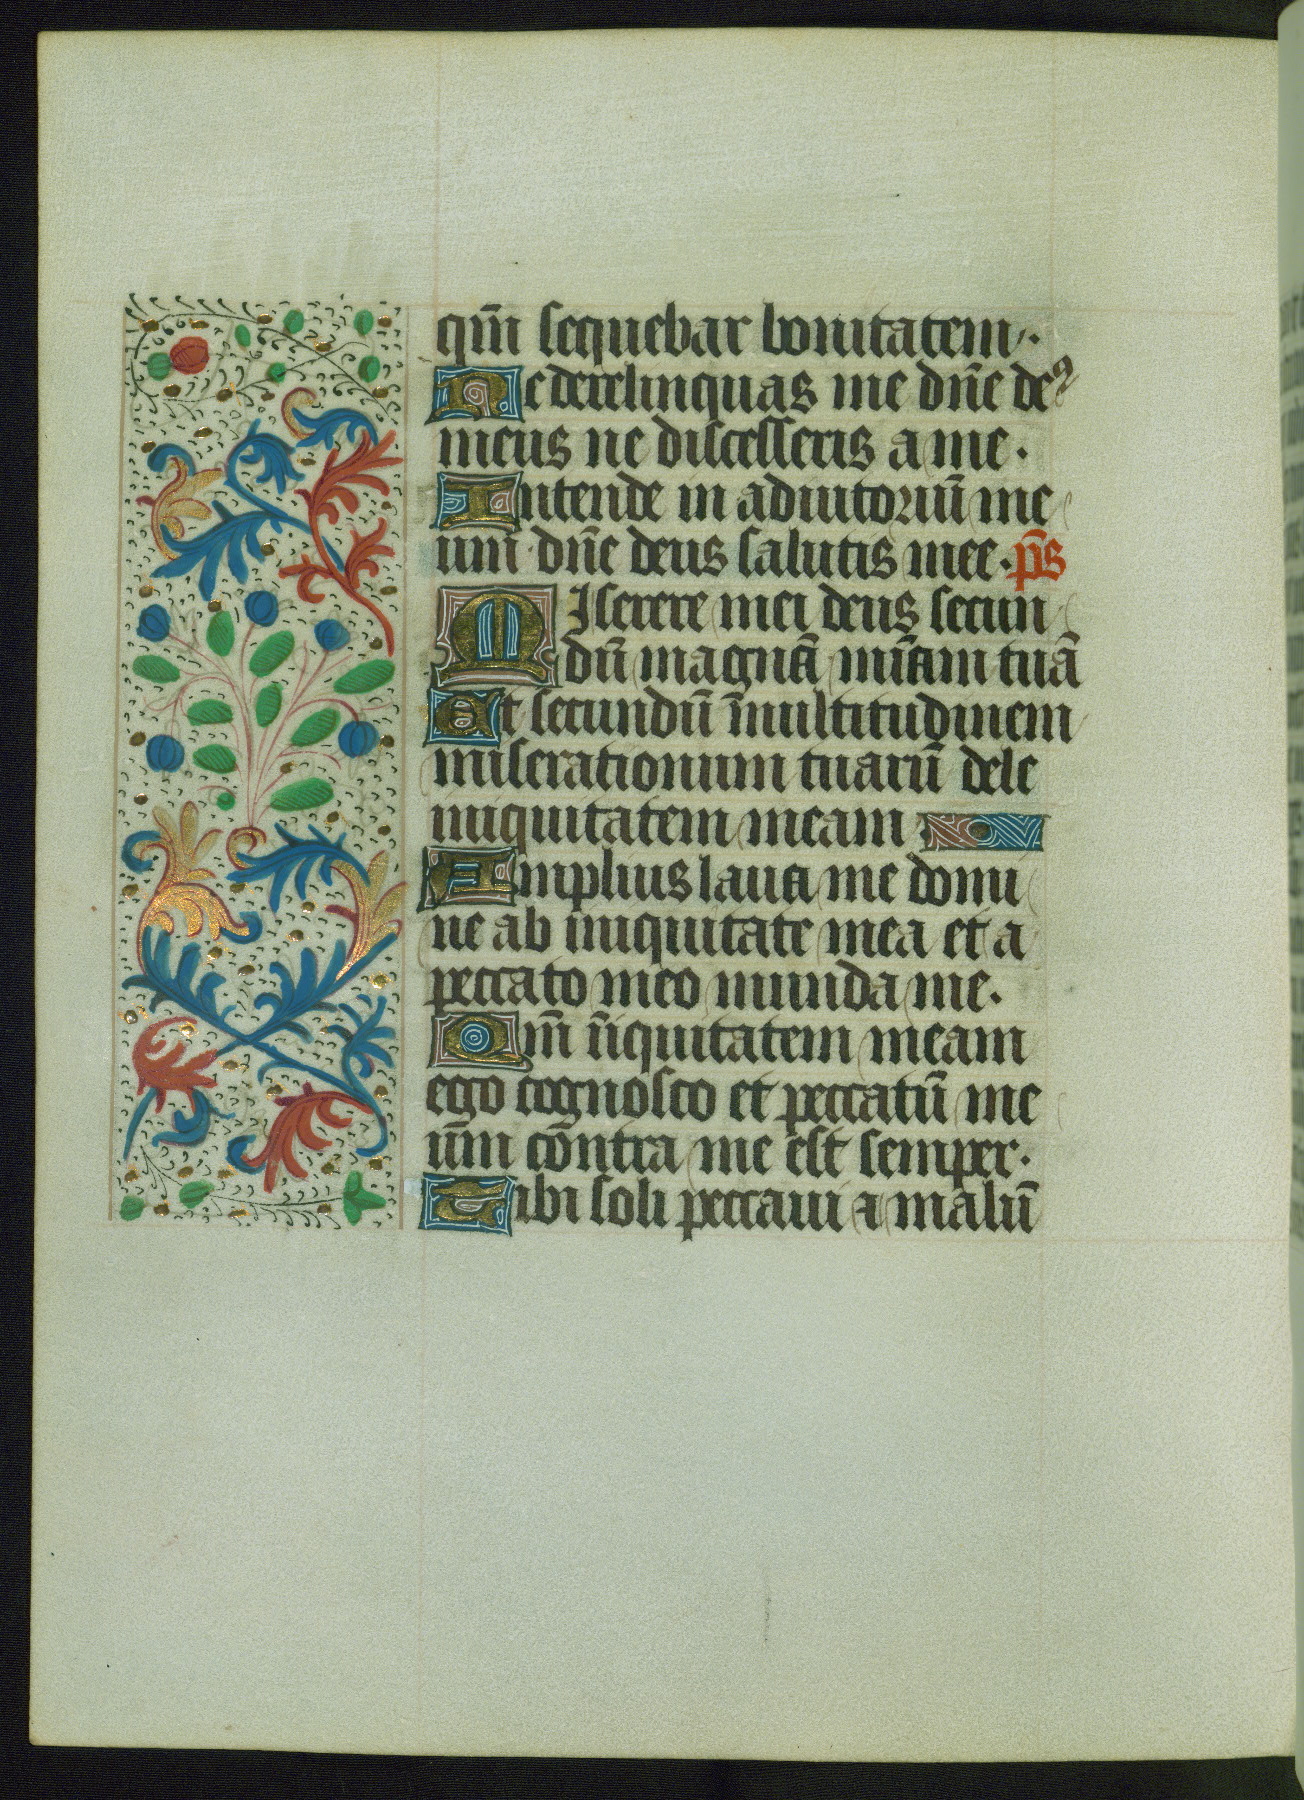 qm̄ sequebar bonitatem·
Ne derelinquas me dn̄e deꝰ
meus ne discesseris a me·
Intende in adiutoriū me
um dn̄e deus salutis mee· p̄s
Miserere mei deus secun
dū magnā mīam tuā
Et secundū multitudinem
miserationum tuarū dele
iniquitatem meam
Amplius laua me domi
ne ab iniquitate mea et a
peccato meo munda me·
Qm̄ iniquitatem meam
ego cognosco et peccatū me
um contra me est semper·
Tibi soli peccaui ⁊ malū